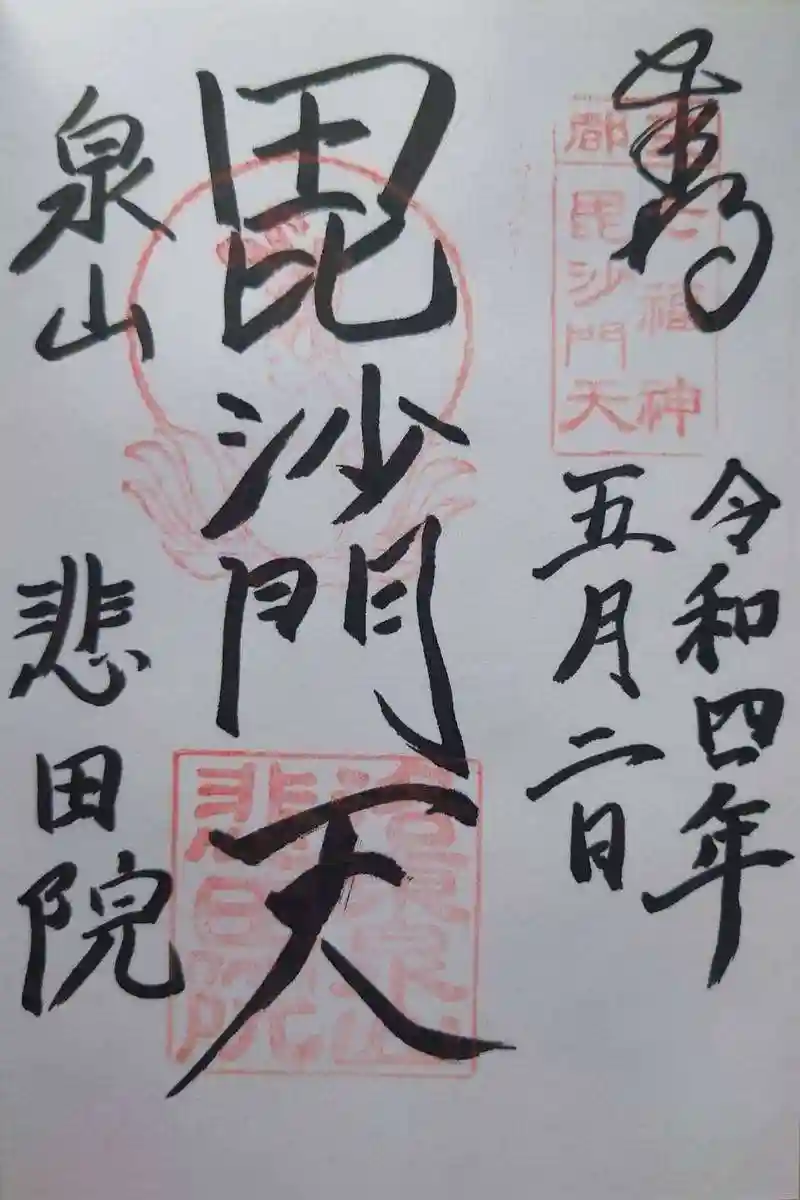 奉拝
令和四年
五月二日
毘沙門天
泉山 悲田院
都七福神
毘沙門天
洛東泉山
悲田院